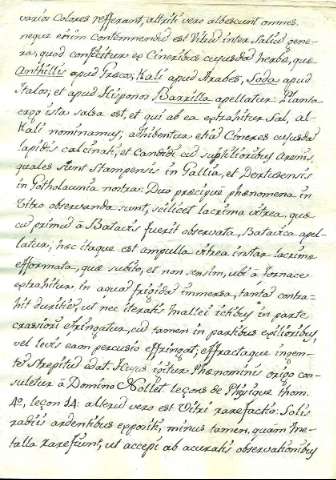 varios colores refferant, attriti vero albescunt omnes.
neque enim contemnendũ est Vitrũ inter Salia gene-
ra, quod conficitur ex Cineribus cujusdã herbæ, quæ
Anthillis apud Græcos, Kali apud Arabes, Soda apud
Italos, et apud Hispanos Barrilla apellatur. Planta
ergo ista salsa est, et qui ab ea extrahitur Sal, al-
Kali nominamus, adhibentur etiã Cineres cujusdã
lapidis calcinati, et candidi cũ subtilioribus arenis,
quales sunt Stampensis in Gallia, et Dertusensis
in Cathalaunia nostra. Duo præcipuè phœnomena in
Vitro observanda sunt, scilicet lacrima vitrea, quæ
cũ primũ à Batavis fuerit observata, Batavica apel-
latur, hæc itaque est ampulla vitrea instar lacrimæ
efformata, quæ subito, et non sensim, ubi à fornace
extrahitur in aquã frigidã immersa, tantã contra-
hit duritiẽ, ut nec iteratis mallei ictibus in parte
crassiori effringatur, cũ tamen in partibus exilioribus,
vel levis eam percusio effringat; effractaque ingen-
tẽ strepitũ edat. Hujus igitur Phenominis origo con-
suletur à Domino Nollet leçons de Phisique thom.
4º, leçon 14: alterũ vero est Vitri rarefactio: Solis
radiis ardentibus oppositi, minus tamen, quam me-
talla rarefiunt, ut accepi ab acuratis observationibus